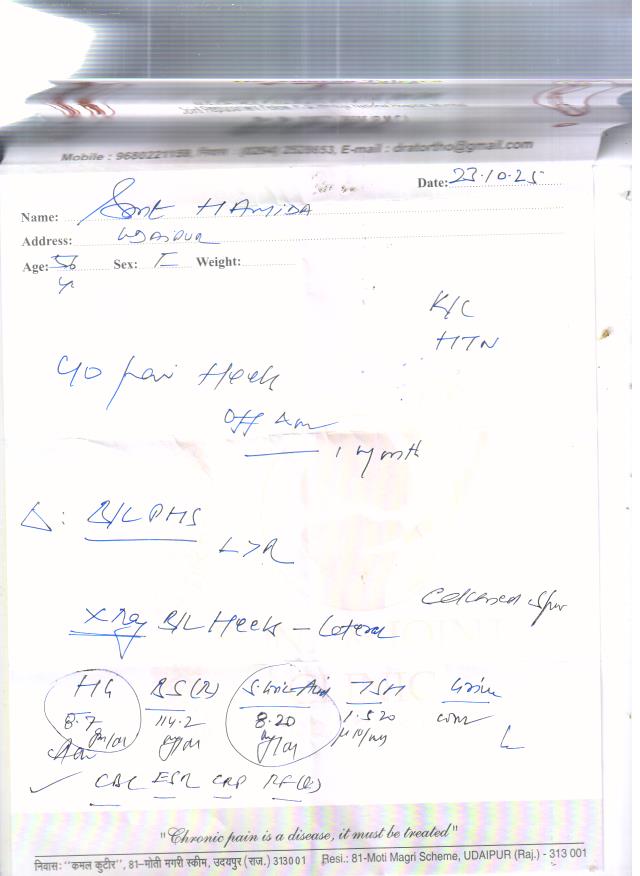 Mobile : 9680221159, (0294) 2529653, E-mail : dratortho@gmail.com
Date: 23.10.25
Name: Smt HAMIDA
Address: UDAIPUR
Age: 56 Sex: F Weight:
yr
K/C
HTN
C/O pain Heels
Off &
1 month
Δ: B/L PHS
L>R
Calcaneal spur
X Ray B/L Heels - Lateral
HG BS(R) S. Uric Acid TSH Urine
8.7 114.2 8.20 1.520
gm/dl mg/dl mg/dl
CBC ESR CRP RF(Q)
"Chronic pain is a disease, it must be treated"
निवास: "कमल कुटीर", 81-मोती मगरी स्कीम, उदयपुर (राज.) 313001 Resi.: 81-Moti Magri Scheme, UDAIPUR (Raj.) - 313 001